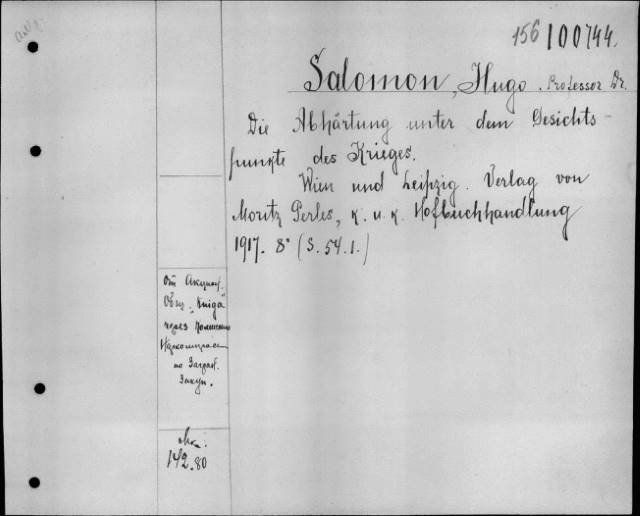 156 100744.
Salomon, Hugo. Professor Dr.
Die Abhärtung unter dem Gesichts-
punkte des Krieges.
Wien und Leipzig. Verlag von
Moritz Perles, k. u. k. Hofbuchhandlung
1917. 8° (S. 54.1.)
От Акцион.
Общ. „Kniga"
через Комиссию
Наркомпроса
по Загран.
Закуп.
Mк.
142.80